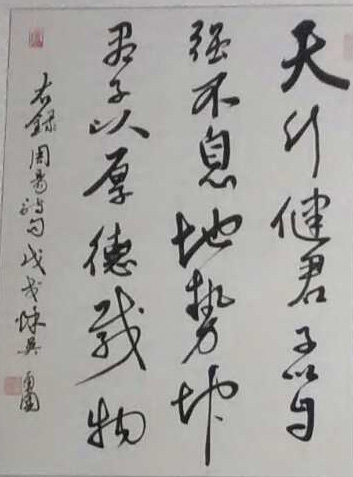 天行健君子以自
强不息地势坤
君子以厚德载物
右録周易诗句戊戌